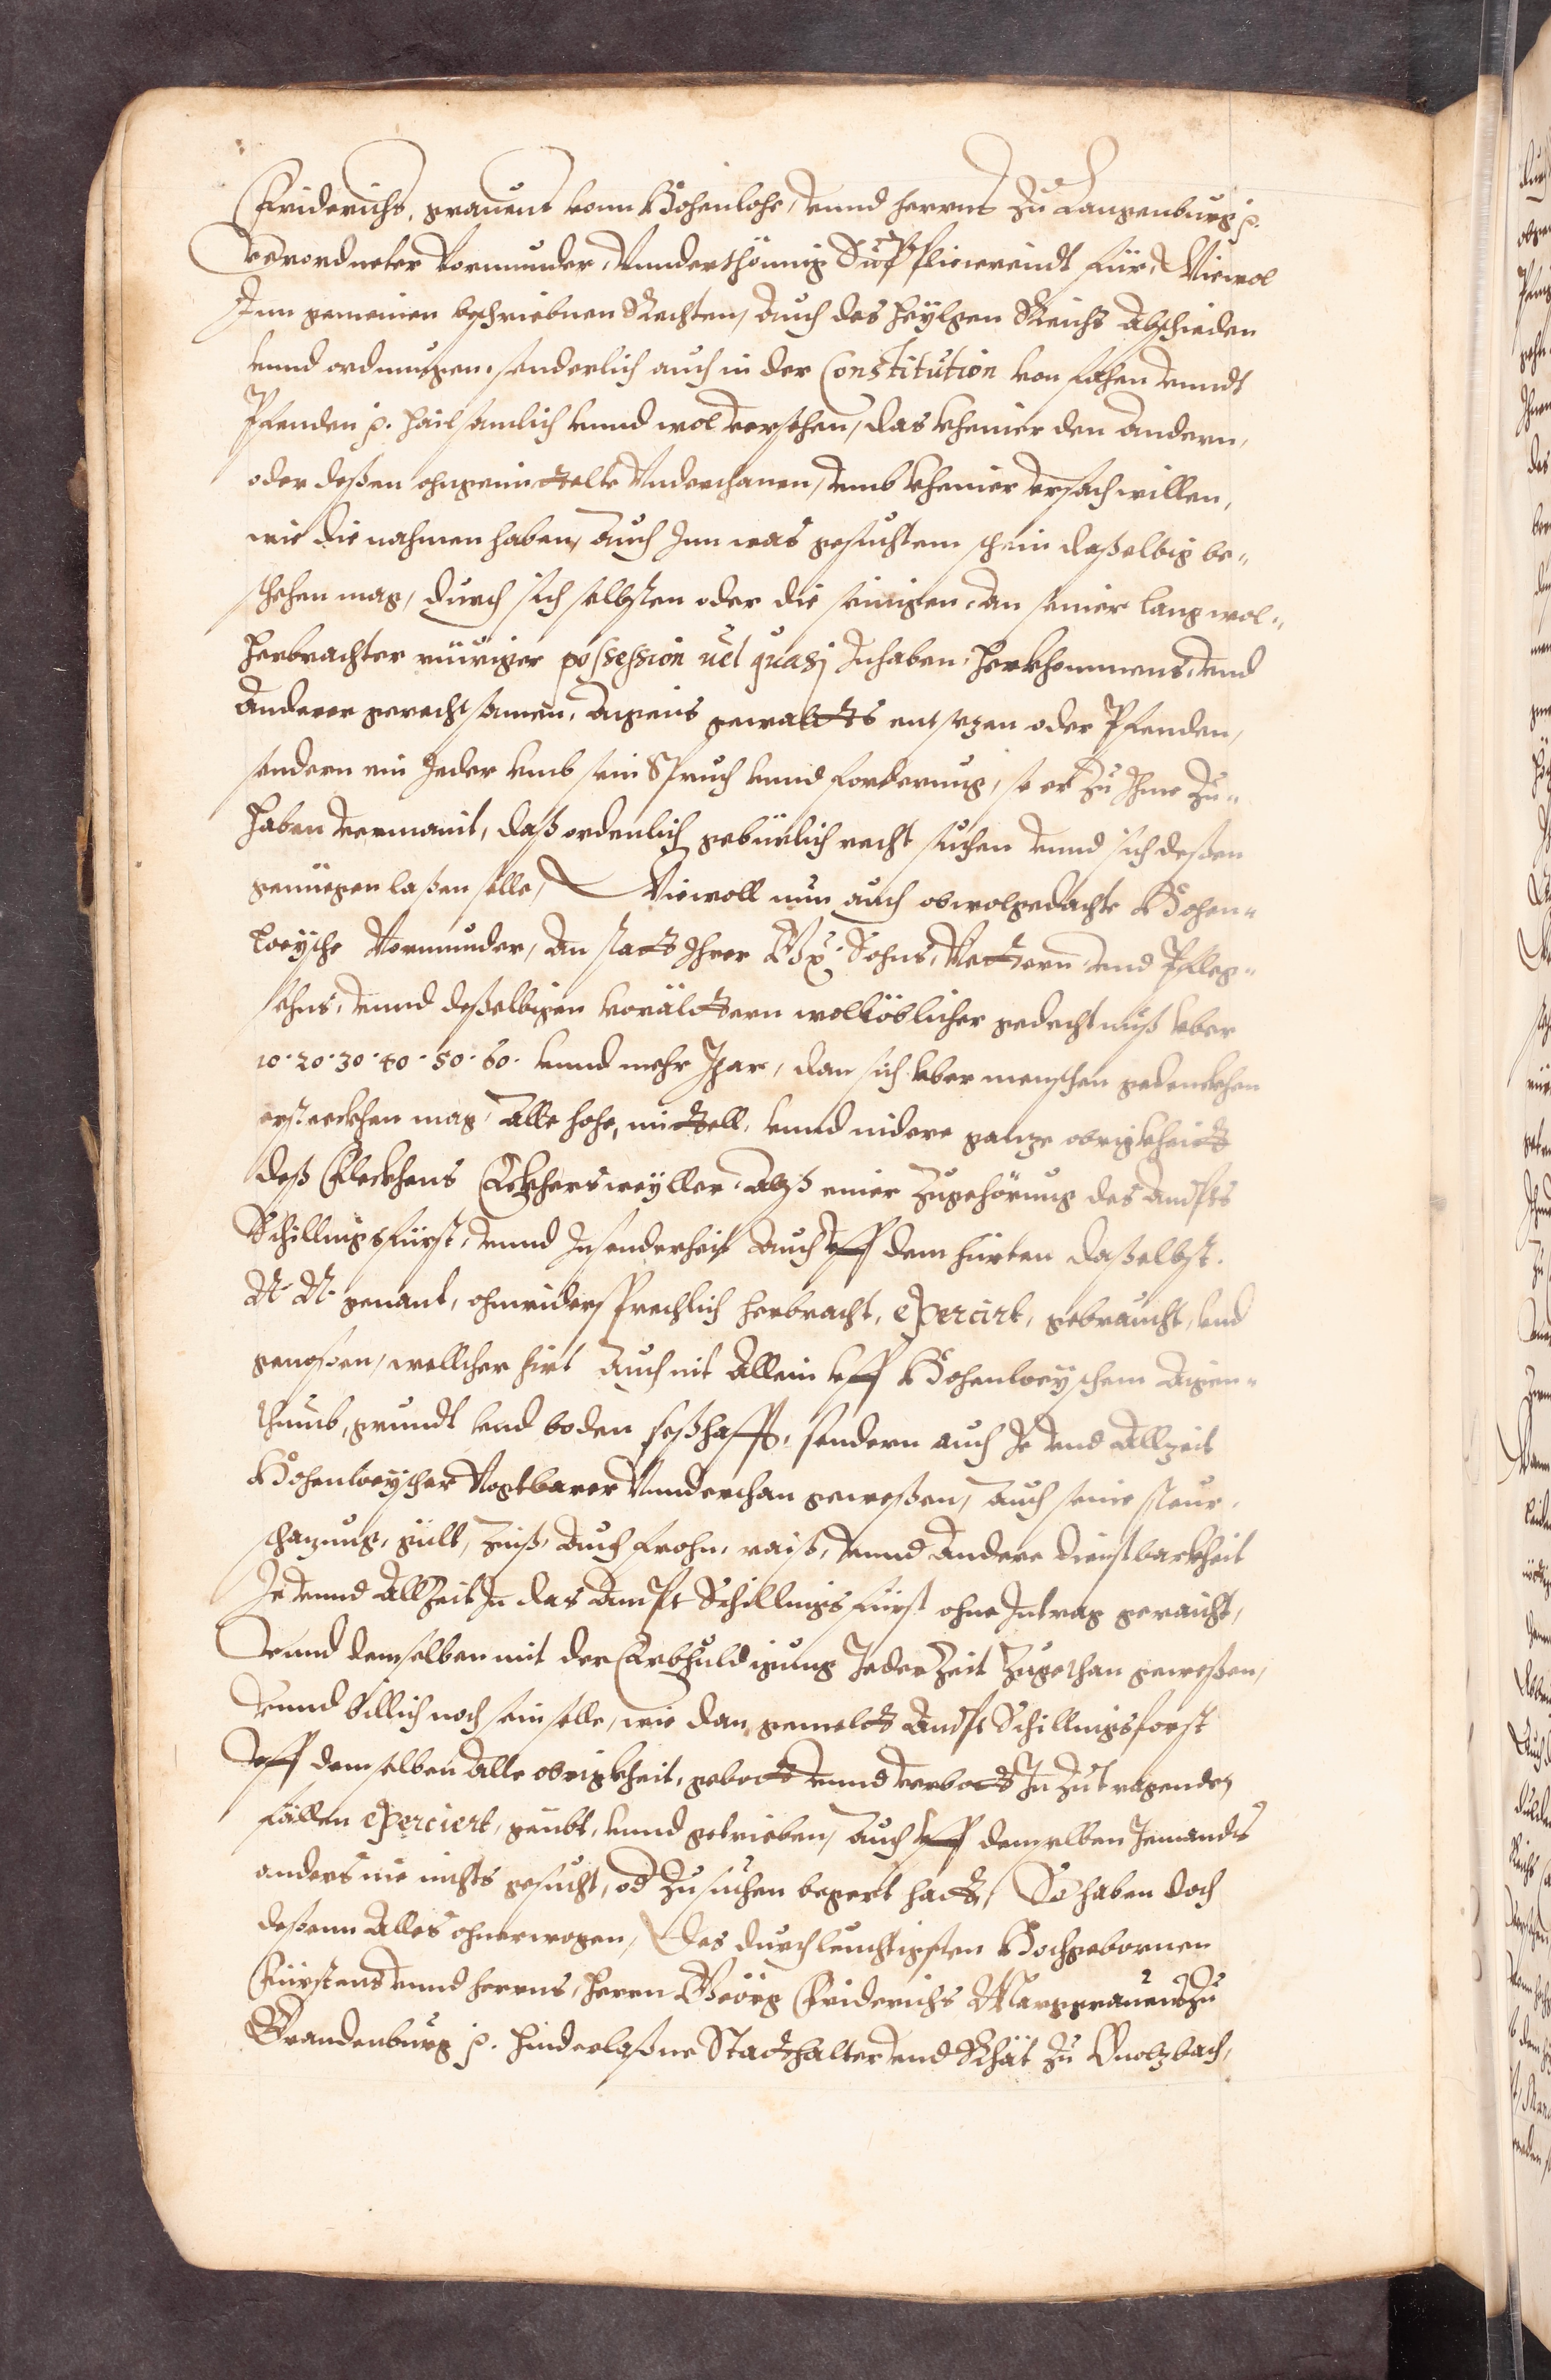 Friderichs, grauens vonn Hohenlohe, vnnd herrns zu Langenburg p.
verordneter Vormunder, Vnnderthönnig Supplicierendt für, Wiewol
Inn gemeinen beschriebnen Rechten, Auch des heyligen Reichs Abschieden
vnnd ordnungen, sonderlich auch in der Constitution von fahen vnndt
Pfenden p. hailsamlich vnnd wol versehen, das kheiner den Andern,
oder deßen ohngemittelte Underthanen, vmb kheiner vrsach willen,
wie die nahmen haben, Auch Inn was gesuchtem schein daßelbig be-
schehen mag, durch sich selbsten oder die seinigen, An seiner lang wol-
herbrachter rüeiger possession uel quasj Inhaben, herkhommens, vnd
Anderer gerechtsamen, Aigens gewaldts entsezen oder Pfenden,
sondern ein Jeder vmb sein Spruch vnnd forderung, so er zu Ihme zu-
haben vermaint, daß ordenlich gebürlich recht suchen vnnd sich deßen
genüegen laßen solle, Wiewoll nun auch obwolgedachte Hohen-
loeysche Vormunder, An statt Ihrer Gn: Sohns, Vettern, vnd Pfleg-
sohns, vnnd deßelbigen vorältern wollöblicher gedechtnuß vber
10. 20. 30. 40. 50. 60. vnnd mehr Jhar, dan sich vber menschen gedenckhen
erstreckhen mag, Alle hohe, mittell, vnnd nidere ganze obrigkheit
deß Fleckhens Eckhersweyller, Alß einer Zugehörung des Ampts
Schillingsfürst, vnnd Insonderheit Auch vff dem hürten daßelbst.
N. N. genant, ohnwidersprechlich herbracht, exercirt, gebraucht, vnd
genoßen, wellcher hirt Auch nit Allein vff Hohenloeyschem Aigen-
thumb, grundt vnd boden seßhafft, sondern auch Je vnd Allzeit
Hohenloeyscher Vogtbarer Vnnderthan geweßen, Auch seine steur,
schazung, gült, zinß, Auch frohn, raiß, vnnd Andere dienstbarkheit
Je vnnd Allzeit In das Ampt Schillingsfürst ohne Intrag geraicht,
Vnnd demselben mit der Erbhuldigung Jeder Zeit Zugethan geweßen,
vnnd billich noch sein solle, wie dan gemelt Ampt Schillingsforst
vff demselben Alle obrigkheit, gebott vnnd verbott In Zutragenden
fällen exerciert, geübt, vnnd getrieben, Auch vff demselben Jemandts
anders nie nichts gesucht, od Zusuchen begert hatt, So haben doch
deßenn Alles ohnerwogen, Des durchleuchtigsten Hochgebornen
Fürstens vnnd herrns, herrn Geörg Friderichs Marggrauens zu
Brandenburg p. hinderlaßne Statthalter vnd Rhät zu Onolzbach,